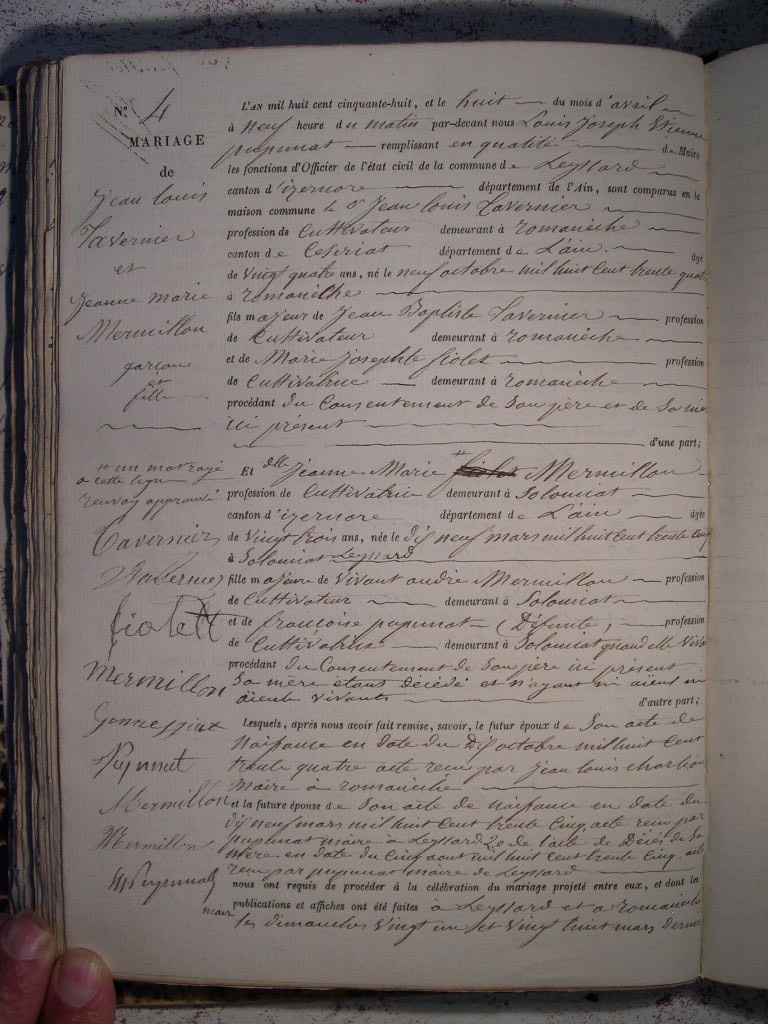 N° 4
MARIAGE
de
Jean louis
Tavernier
et
Jeanne marie
Mermillon
garcon
et
fille
# un mot rayé
a cette ligne
renvoy approuvé
Tavernier
Tavernier
fiolett
Mermillon
Puymmet
Mermillon
Mermillon
maire
L'AN mil huit cent cinquante-huit, et le huit du mois d'avril
à neuf heure du matin par-devant nous Louis Joseph Etienne
remplissant en qualité de Maire
les fonctions d'Officier de l'état civil de la commune de Leyssard
canton d'izernore département de l'Ain, sont comparus en la
maison commune le Sr Jean louis Tavernier
profession de Cultivateur demeurant à romanèche
canton de Ceseriat département de L'ain. âgé
de vingt quatre ans, né le neuf octobre mil huit Cent trente quatre
à romanèche
fils majeur de Jean Baptiste Tavernier profession
de Cultivateur demeurant à romanèche
et de Marie josephte fiolet profession
de Cultivatrice demeurant à romanèche
procédant du Consentement de Son père et de Sa mère
ici présent
d'une part;
Et dlle Jeanne Marie # Mermillon
profession de Cultivatrice demeurant à Solomiat
canton d'izernore département de L'ain âgée
de vingt trois ans, née le dix neuf mars mil huit Cent trente Cinq
à Solomiat Leyssard
fille majeure de vivant andré Mermillon profession
de Cultivateur demeurant à Solomiat
et de françoise (Défunte) profession
de Cultivatrice demeurant à Solomiat quand elle vivait
procédant du Consentement de Son père ici présent
Sa mère étant décédé et n'ayant ni aïeul ni
aïeule vivants d'autre part;
Lesquels, après nous avoir fait remise, savoir, le futur époux de Son acte de
Naissance en date du Dix octobre mil huit Cent
trente quatre acte reçu par Jean louis
Maire à romanèche
et la future épouse de Son acte de Naissance en date du
dix neuf mars mil huit Cent trente Cinq, acte reçu par
maire à Leyssard 2o de l'acte de Décès de Sa
mère en date du Cinq aout mil huit Cent trente Cinq. acte
reçu par maire de Leyssard
nous ont requis de procéder à la célébration du mariage projeté entre eux, et dont les
publications et affiches ont été faites à Leyssard et a romanèche
les dimanches vingt un et vingt huit mars dernier